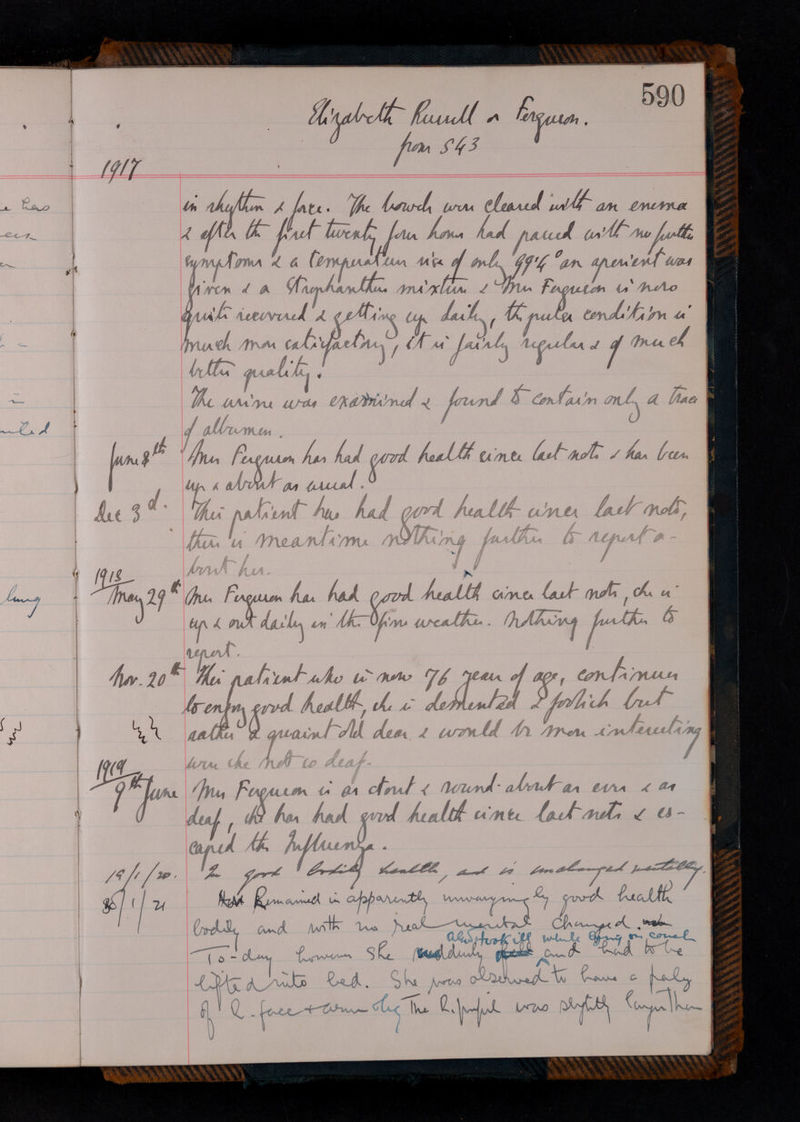 590
Elizabeth Russell or Ferguson.
from 543
1917
in rhythm & force. The bowels were cleared with an enema
& after the first twenty four hours had passed with no further
symptoms & a temperature rise of only 99.4° an aperient was
given & a Strophanthus mixture & Mrs Ferguson is now
quite recovered & getting up daily, the pulse condition is
much more satisfactory, it is fairly regular & of much
better quality.
The urine was examined & found to contain only a trace
of albumen.
June 8th Mrs Ferguson has had good health since last note & has been
up & about as usual.
Dec 3d. This patient has had good health since last note,
there is meantime nothing further to report a-
bout her.
1918
May 29th Mrs Ferguson has had good health since last note, she is
up & out daily in the fine weather. Nothing further to
report.
Nov. 20th This patient who is now 76 years of age, continues
to enjoy good health, she is demented & foolish but
rather a quaint old dear & would be more interesting
were she not so deaf.
1919
9th June Mrs Ferguson is as stout & round-about as ever & as
deaf, she has had good health since last note & es-
caped the Influenza.
19/1/20. In good bodily health, and is unchanged mentally.
30/1/21 Remained in apparently unvaryingly good health
bodily and with no real mental changed.
To-day however she suddenly took ill while lying on couch and had to be
lifted into bed. She was observed to have a palsy
of R. face & arm & leg The R. pupil was slightly larger than
has
lung